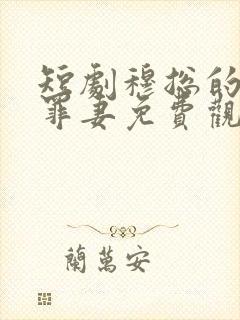 短劇穆総的
罪妻免費觀
蘭萬安